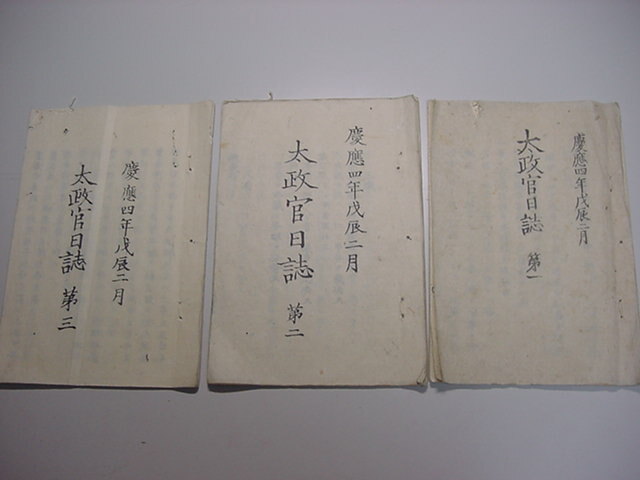 慶應四年戊辰二月
太政官日誌 第一
慶應四年戊辰二月
太政官日誌 第二
慶應四年戊辰二月
太政官日誌 第三